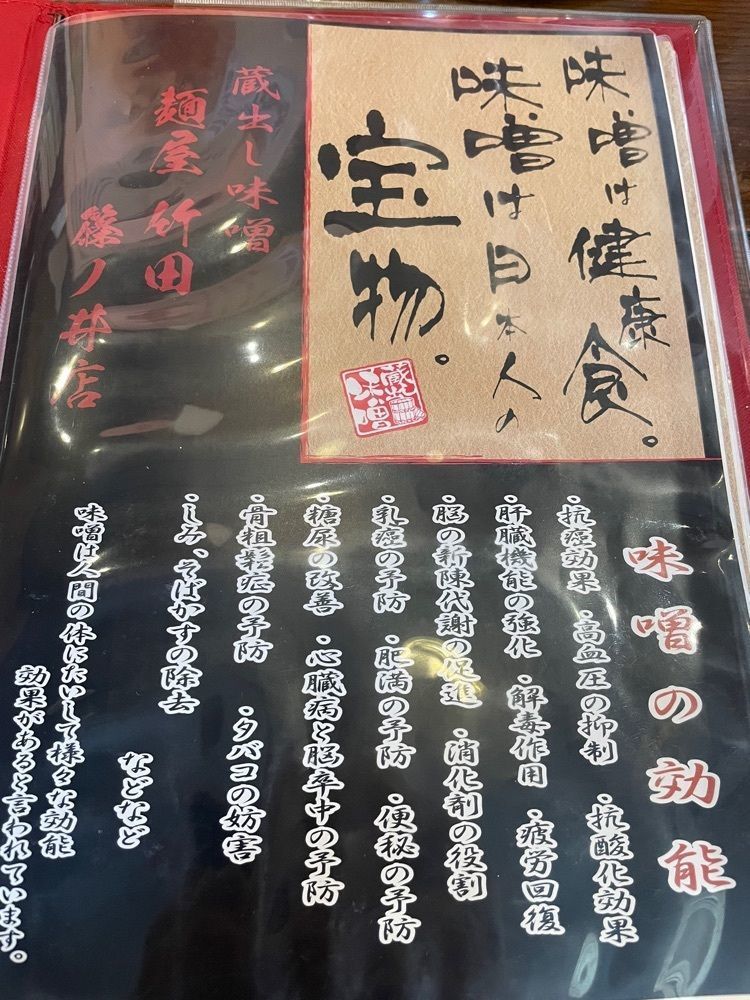 味噌は健康食。
味噌は日本人の
宝物。
蔵出し味噌
蔵出し味噌
麺屋 竹田
篠ノ井店
味噌の効能
・抗癌効果 ・高血圧の抑制 ・抗酸化効果
・肝臓機能の強化 ・解毒作用 ・疲労回復
・脳の新陳代謝の促進 ・消化剤の役割
・乳癌の予防 ・肥満の予防 ・便秘の予防
・糖尿の改善 ・心臓病と脳卒中の予防
・骨粗鬆症の予防 ・タバコの妨害
・しみ、そばかすの除去
などなど
味噌は人間の体にたいして様々な効能
効果があると言われています。